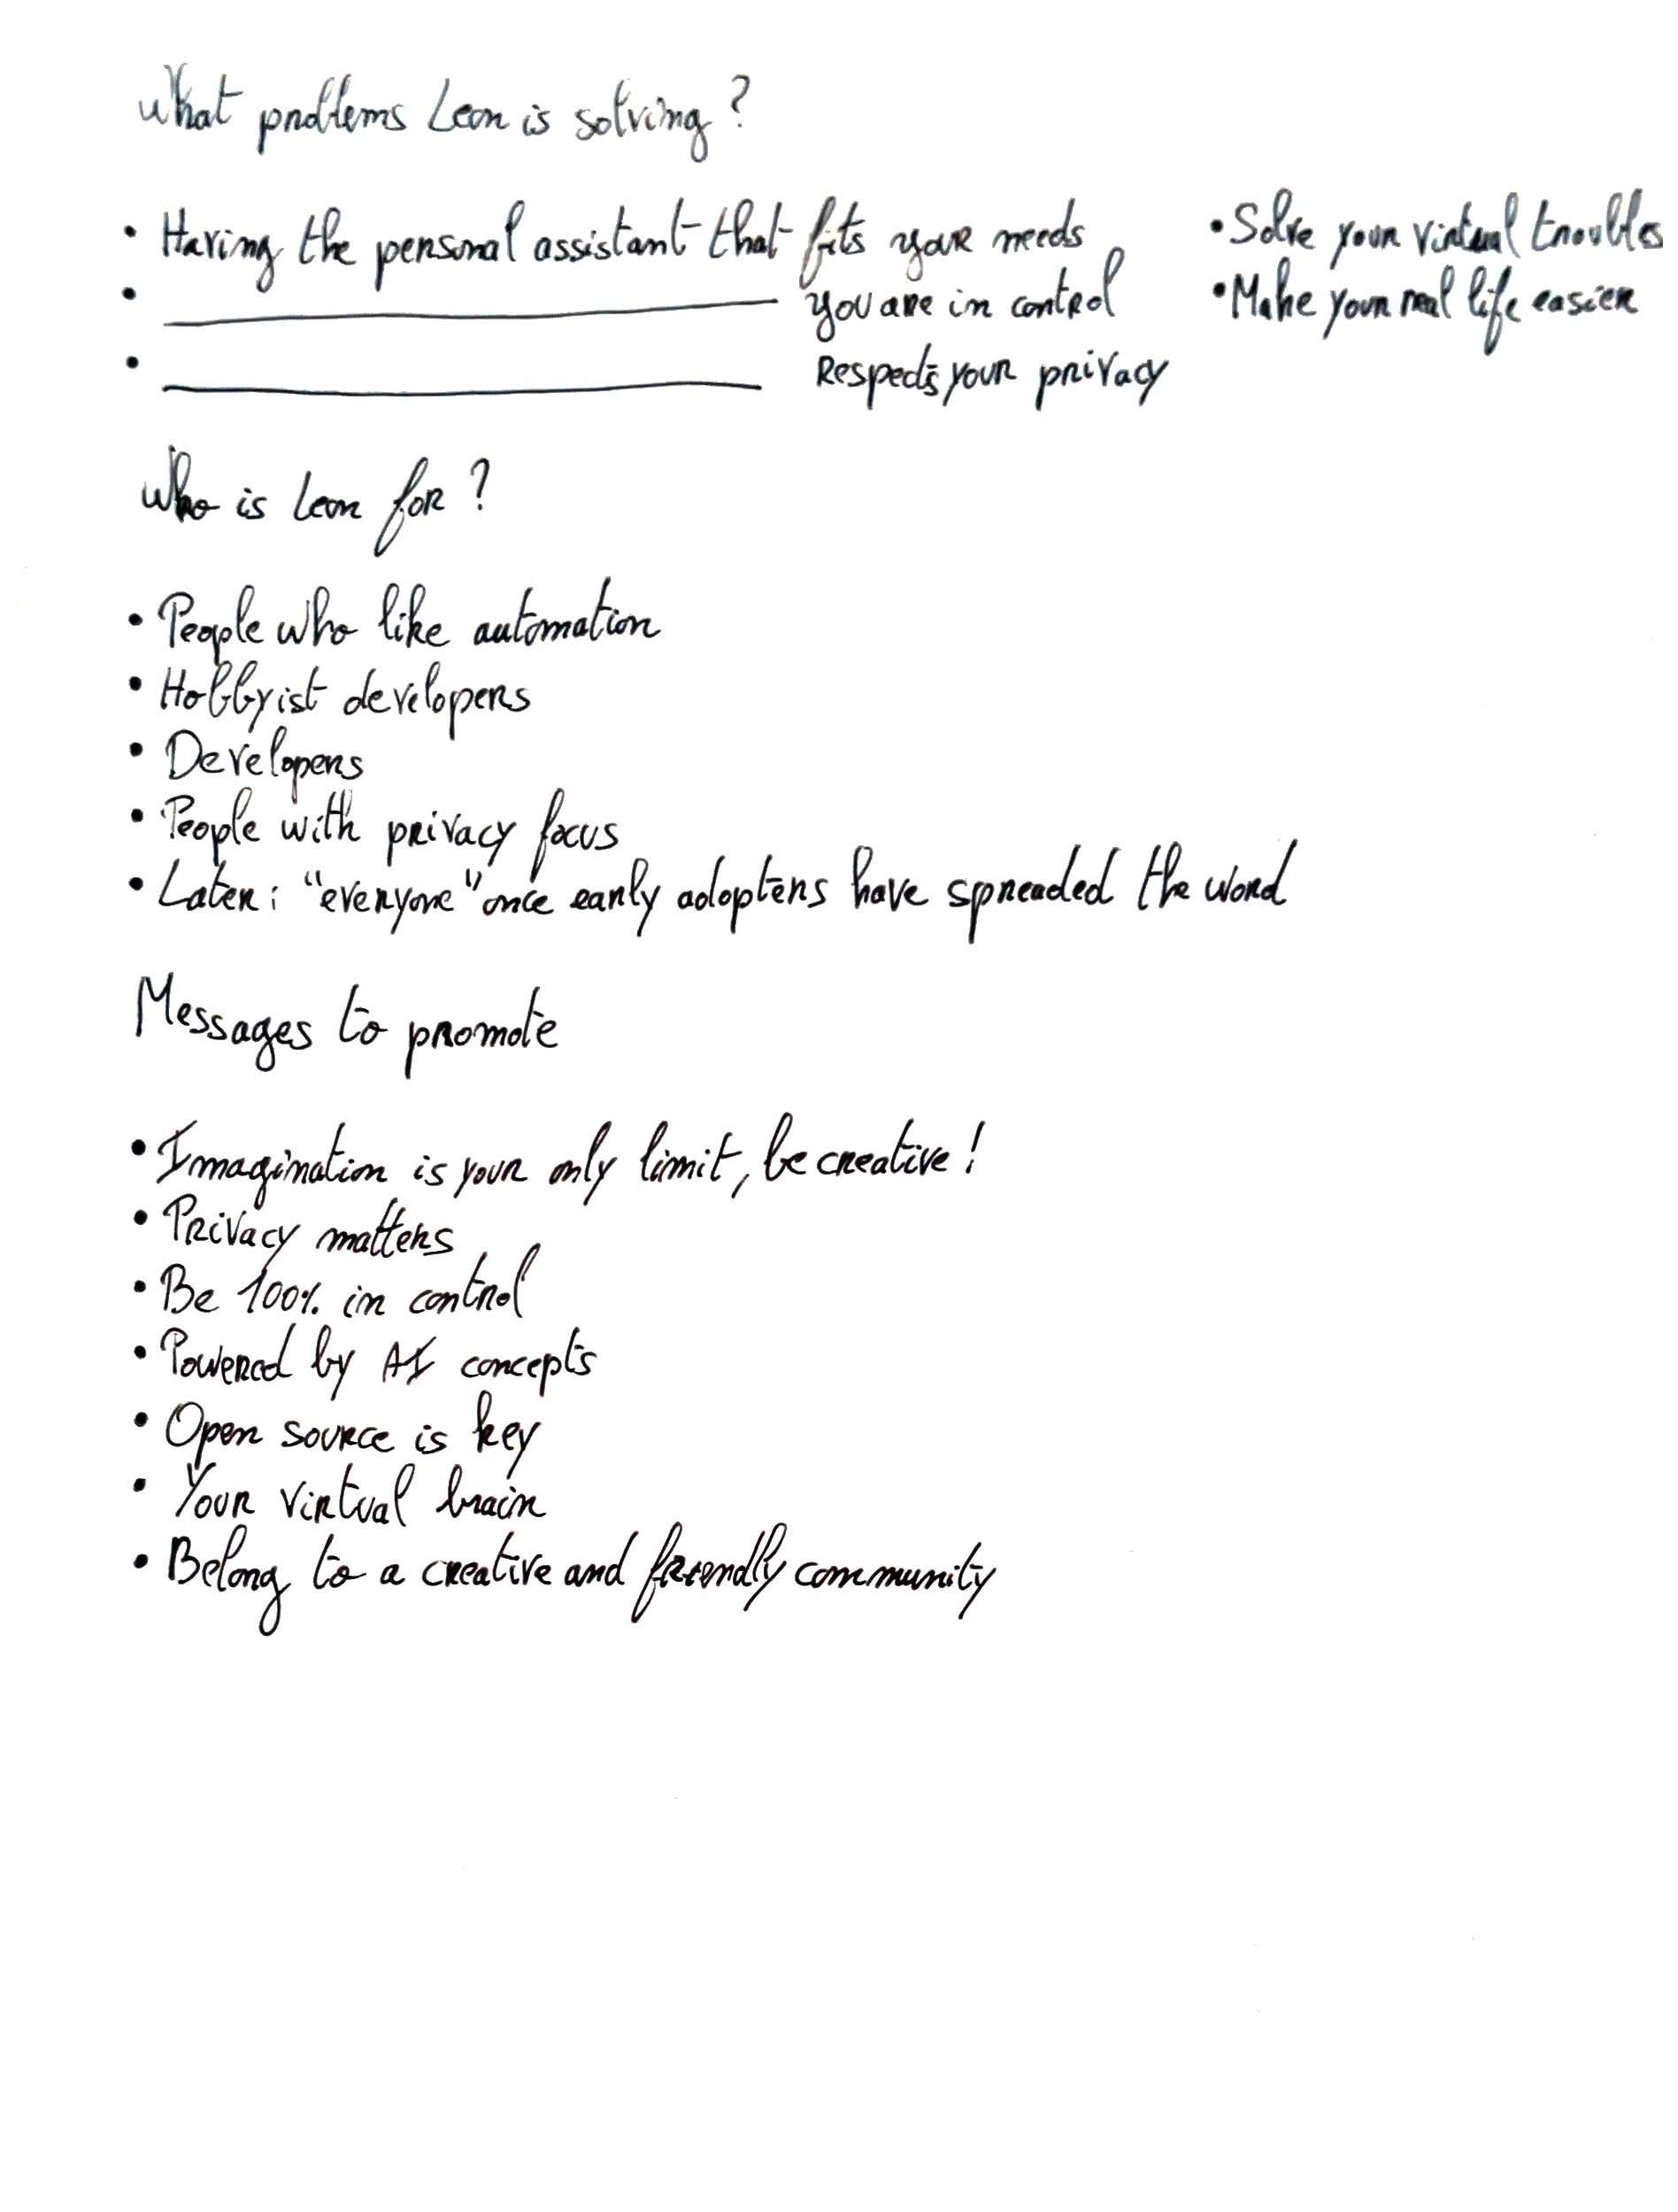 What problems Leon is solving?
• Having the personal assistant that fits your needs
• you are in control
• Respects your privacy
• Solve your virtual troubles
• Make your real life easier
Who is Leon for?
• People who like automation
• Hobbyist developers
• Developers
• People with privacy focus
• Later: "everyone" once early adopters have spreaded the word
Messages to promote
• Imagination is your only limit, be creative!
• Privacy matters
• Be 100% in control
• Powered by AI concepts
• Open source is key
• Your virtual brain
• Belong to a creative and friendly community